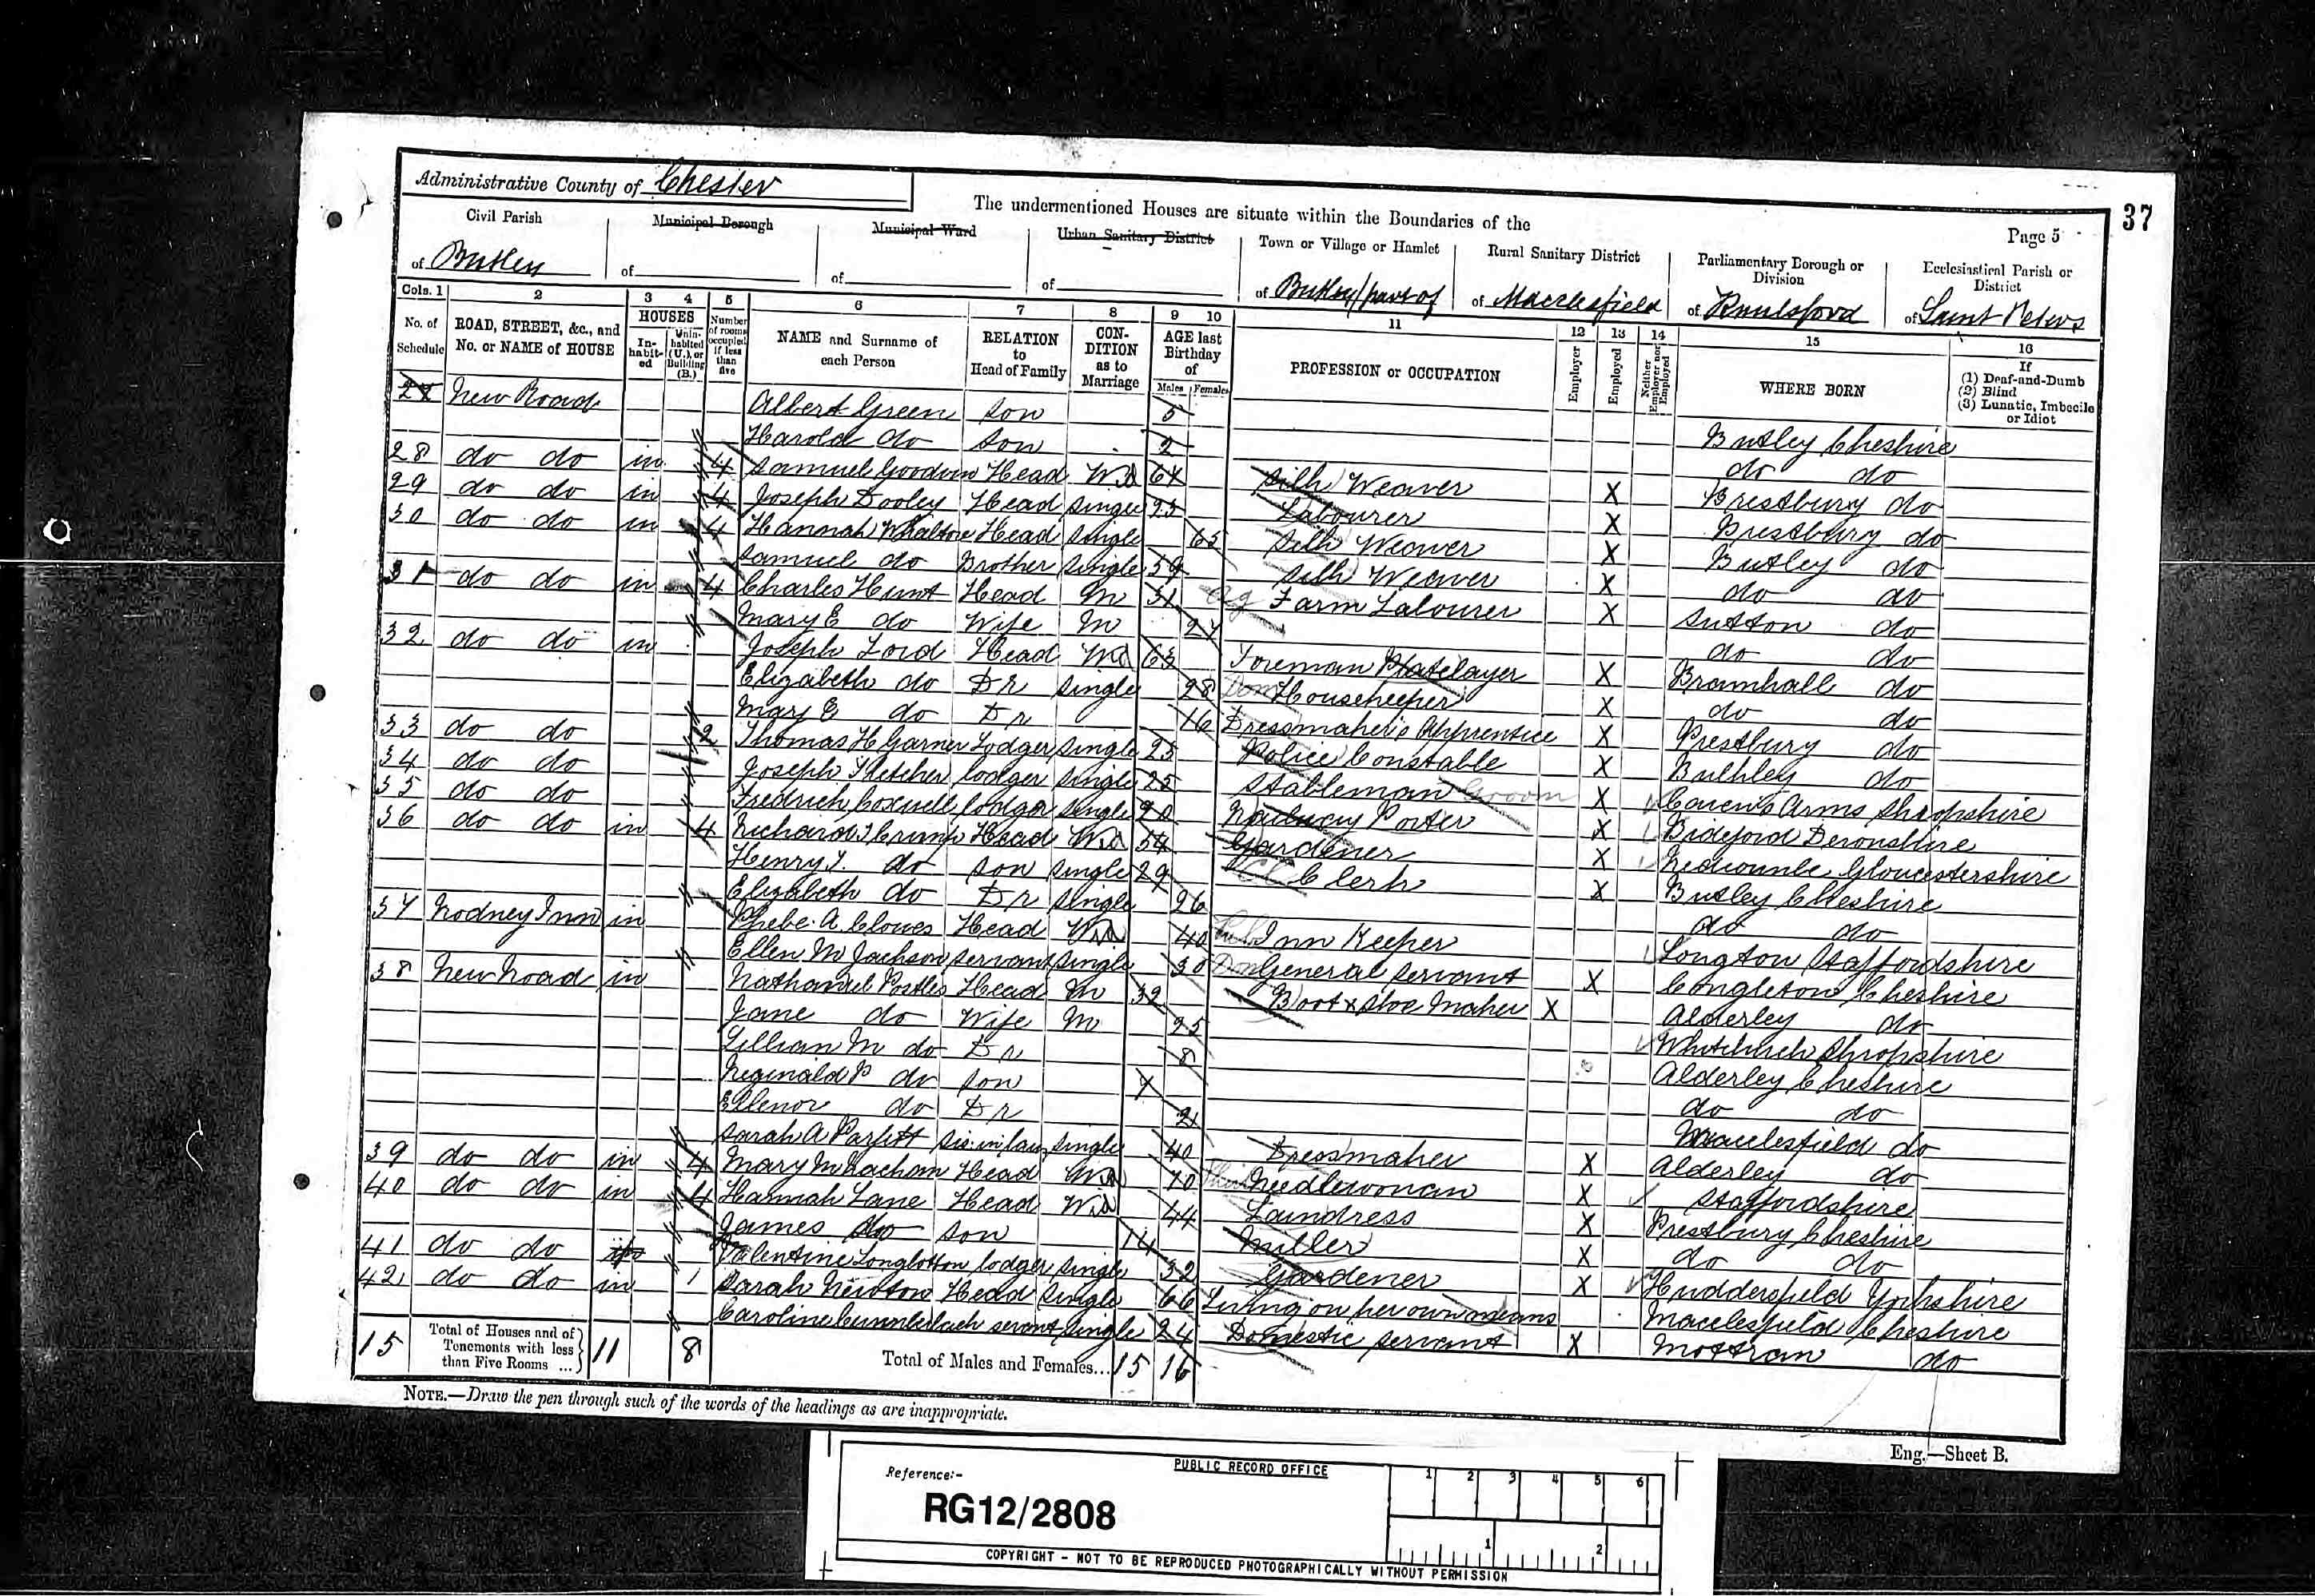 Administrative County of Chester
The undermentioned Houses are situate within the Boundaries of the
Page 5
37
Civil Parish
Municipal Borough
Municipal Ward
Urban Sanitary District
Town or Village or Hamlet
Rural Sanitary District
Parliamentary Borough or Division
Ecclesiastical Parish or District
of Butley
of
of
of
of Butley/part of
of Macclesfield
of Knutsford
of Saint Peters
Cols. 1 2 3 4 5 6 7 8 9 10 11 12 13 14 15 16
No. of Schedule
ROAD, STREET, &c., and No. or NAME of HOUSE
HOUSES
In-habit-ed
Unin-habited (U.), or Building (B.)
Number of rooms occupied if less than five
NAME and Surname of each Person
RELATION to Head of Family
CON-DITION as to Marriage
AGE last Birthday of
Males Females
PROFESSION or OCCUPATION
Employer
Employed
Neither Employer nor Employed
WHERE BORN
If
(1) Deaf-and-Dumb
(2) Blind
(3) Lunatic, Imbecile or Idiot
New Road Albert Green son 5 Butley Cheshire
Harold do son 2 do do
28 do do in 4 Samuel Goodwin Head Wd 64 Silk Weaver X Prestbury do
29 do do in 4 Joseph Dooley Head Single 25 Labourer X Prestbury do
30 do do in 4 Hannah Whalton Head Single 65 Silk Weaver X Butley do
Samuel do Brother Single 59 Silk Weaver X do do
31 do do in 4 Charles Hunt Head M 31 Ag Farm Labourer X Sutton do
Mary E do Wife M 27 do do
32 do do in Joseph Lord Head Wd 63 Foreman Platelayer X Bramhall do
Elizabeth do Dr Single 28 Dom Housekeeper X do do
Mary E do Dr 16 Dressmaker's Apprentice X Prestbury do
33 do do 2 Thomas H Garner Lodger Single 25 Police Constable X do
34 do do Joseph Fletcher lodger Single 25 Stableman Groom X Craven Arms Shropshire
35 do do Fredrich Coxwell lodger Single 20 Railway Porter X Bideford Devonshire
36 do do in 4 Richard Crump Head Wd 54 Gardener X Gloucestershire
Henry J. do son single 29 Clerk X Butley Cheshire
Elizabeth do Dr Single 26 do do
37 Rodney Inn in Phebe A. Clowes Head Wd 40 Inn Keeper Longton Staffordshire
Ellen M Jackson servant single 30 Dom General Servant X Congleton Cheshire
38 New Road in Nathaniel Postles Head M 32 Boot & Shoe Maker X Alderley do
Jane do Wife M 25 Whitchurch Shropshire
Lillian M do Dr 8 Alderley Cheshire
Reginald P do son 7 do do
Ellenor do Dr 2 Macclesfield do
Sarah A Parfitt Sis. in law Single 40 Dressmaker X Alderley do
39 do do in 4 Mary Head Wd 70 Needlewoman X Staffordshire
40 do do in 4 Hannah Lane Head Wd 44 Laundress X Prestbury Cheshire
James do son 14 Miller X do do
41 do do Valentine Longbottom lodger Single 32 Gardener X Huddersfield Yorkshire
42 do do in 1 Sarah Newton Head Single 66 Living on her own means Macclesfield Cheshire
Caroline servant single 24 Domestic servant X Mottram do
15 Total of Houses and of Tenements with less than Five Rooms ... 11 8 Total of Males and Females... 15 16
NOTE.—Draw the pen through such of the words of the headings as are inappropriate.
Eng.—Sheet B.
PUBLIC RECORD OFFICE
Reference:-
RG12/2808
1 2 3 4 5 6
1 2
COPYRIGHT - NOT TO BE REPRODUCED PHOTOGRAPHICALLY WITHOUT PERMISSION